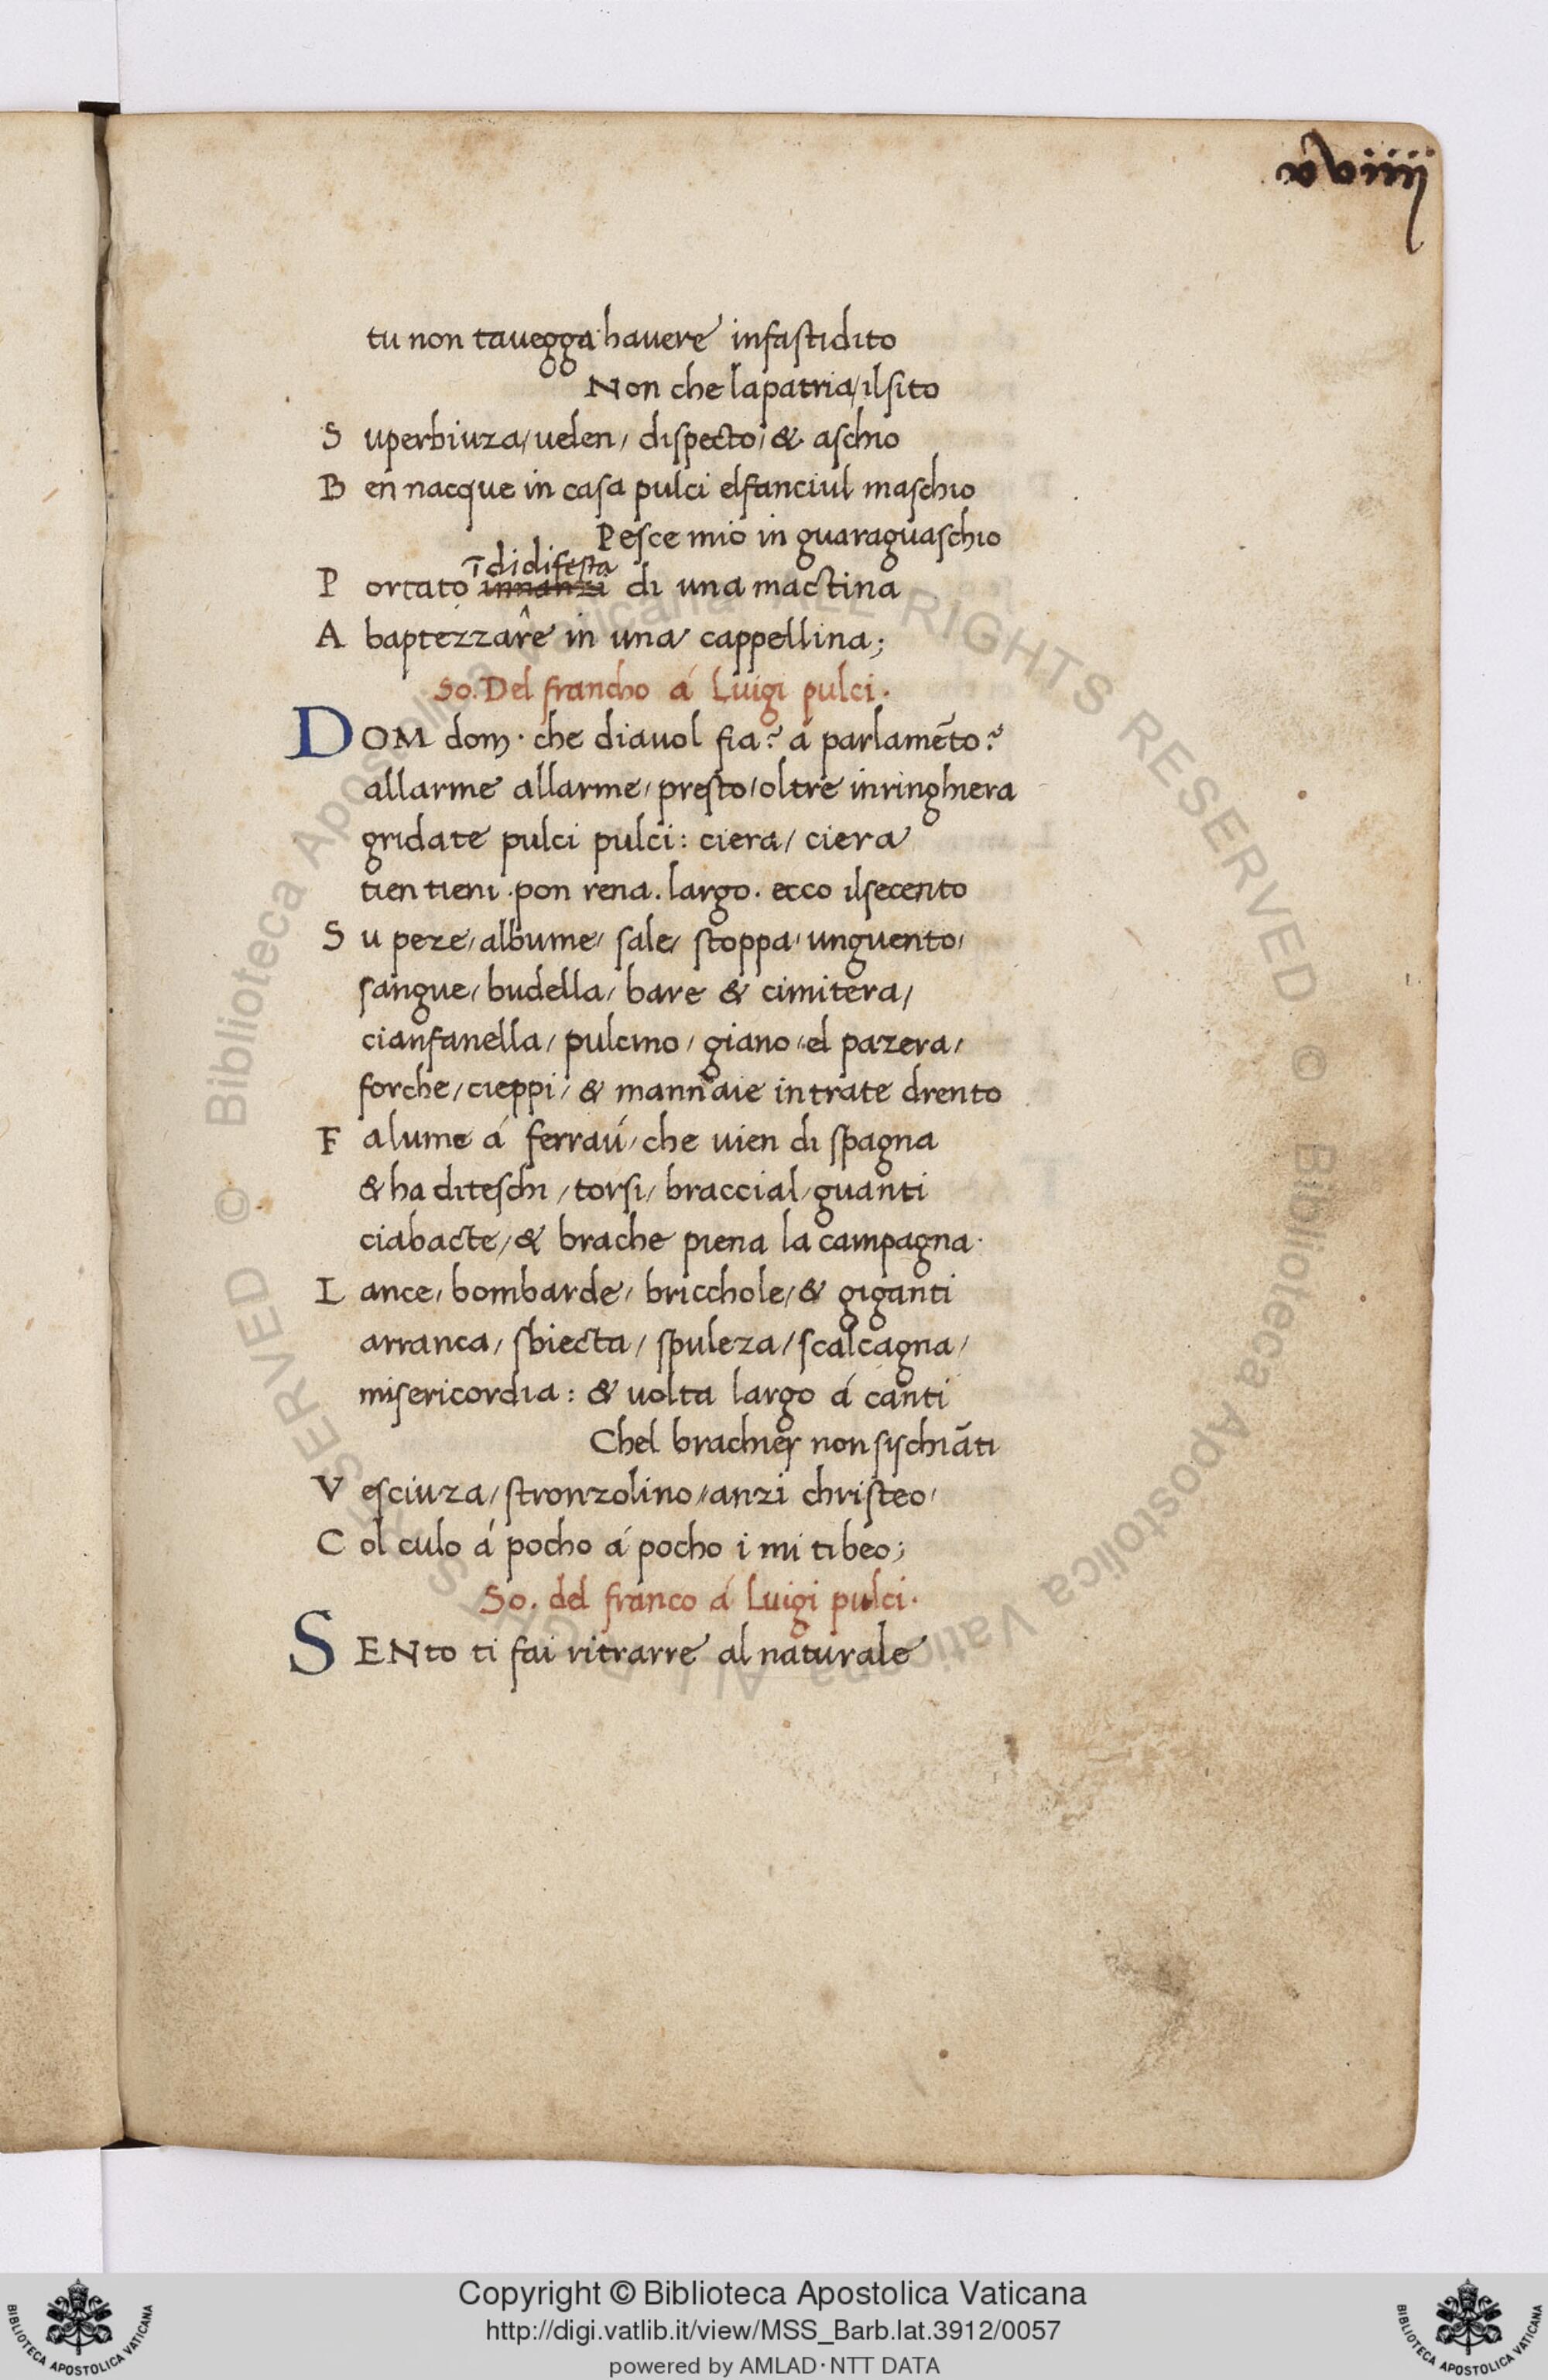 xviiij
tu non tauegga hauere infastidito
Non che lapatria/ilsito
S uperbiuza/ueden/ dispecto/& aschio
B en nacque in casa pulci elfanciul maschio
Pesce mio in guaraguaschio
ĩ di difesta
P ortato innanzi di una mactina
A baptezzare in una cappellina;
So. Del francho á Luigi pulci.
DOM dom· che diauol fia? a parlamẽto?
allarme allarme/presto/oltre inringhiera
gridate pulci pulci: ciera/ ciera
tien tieni .pon rena. largo. ecco ilsecento
S u peze/albume/ sale/ stoppa/unguento/
sangue/budella/bare & cimitera/
cianfanella/ pulcino/ giano/el pazera/
forche/cieppi/ & mannaie intrate drento
F alume á ferraú/che uien di spagna
& ha diteschi/torsi/braccial/guanti
ciabacte/& brache piena la campagna.
L ance/bombarde/ bricchole/& giganti
arranca/ sbiecta/ spuleza/scalcagna/
misericordia: & uolta largo á canti
Chel brachier non sischiãti
V esciuza/stronzolino/anzi christeo/
C ol culo á pocho á pocho i mi tibeo;
So. del franco á Luigi pulci.
SENto ti fai ritrarre al naturale
© Biblioteca Apostolica Vaticana ALL RIGHTS RESERVED © Biblioteca Apostolica Vaticana ALL RIGHTS RESERVED
Copyright © Biblioteca Apostolica Vaticana
http://digi.vatlib.it/view/MSS_Barb.lat.3912/0057
powered by AMLAD·NTT DATA
BIBLIOTECA APOSTOLICA VATICANA
BIBLIOTECA APOSTOLICA VATICANA